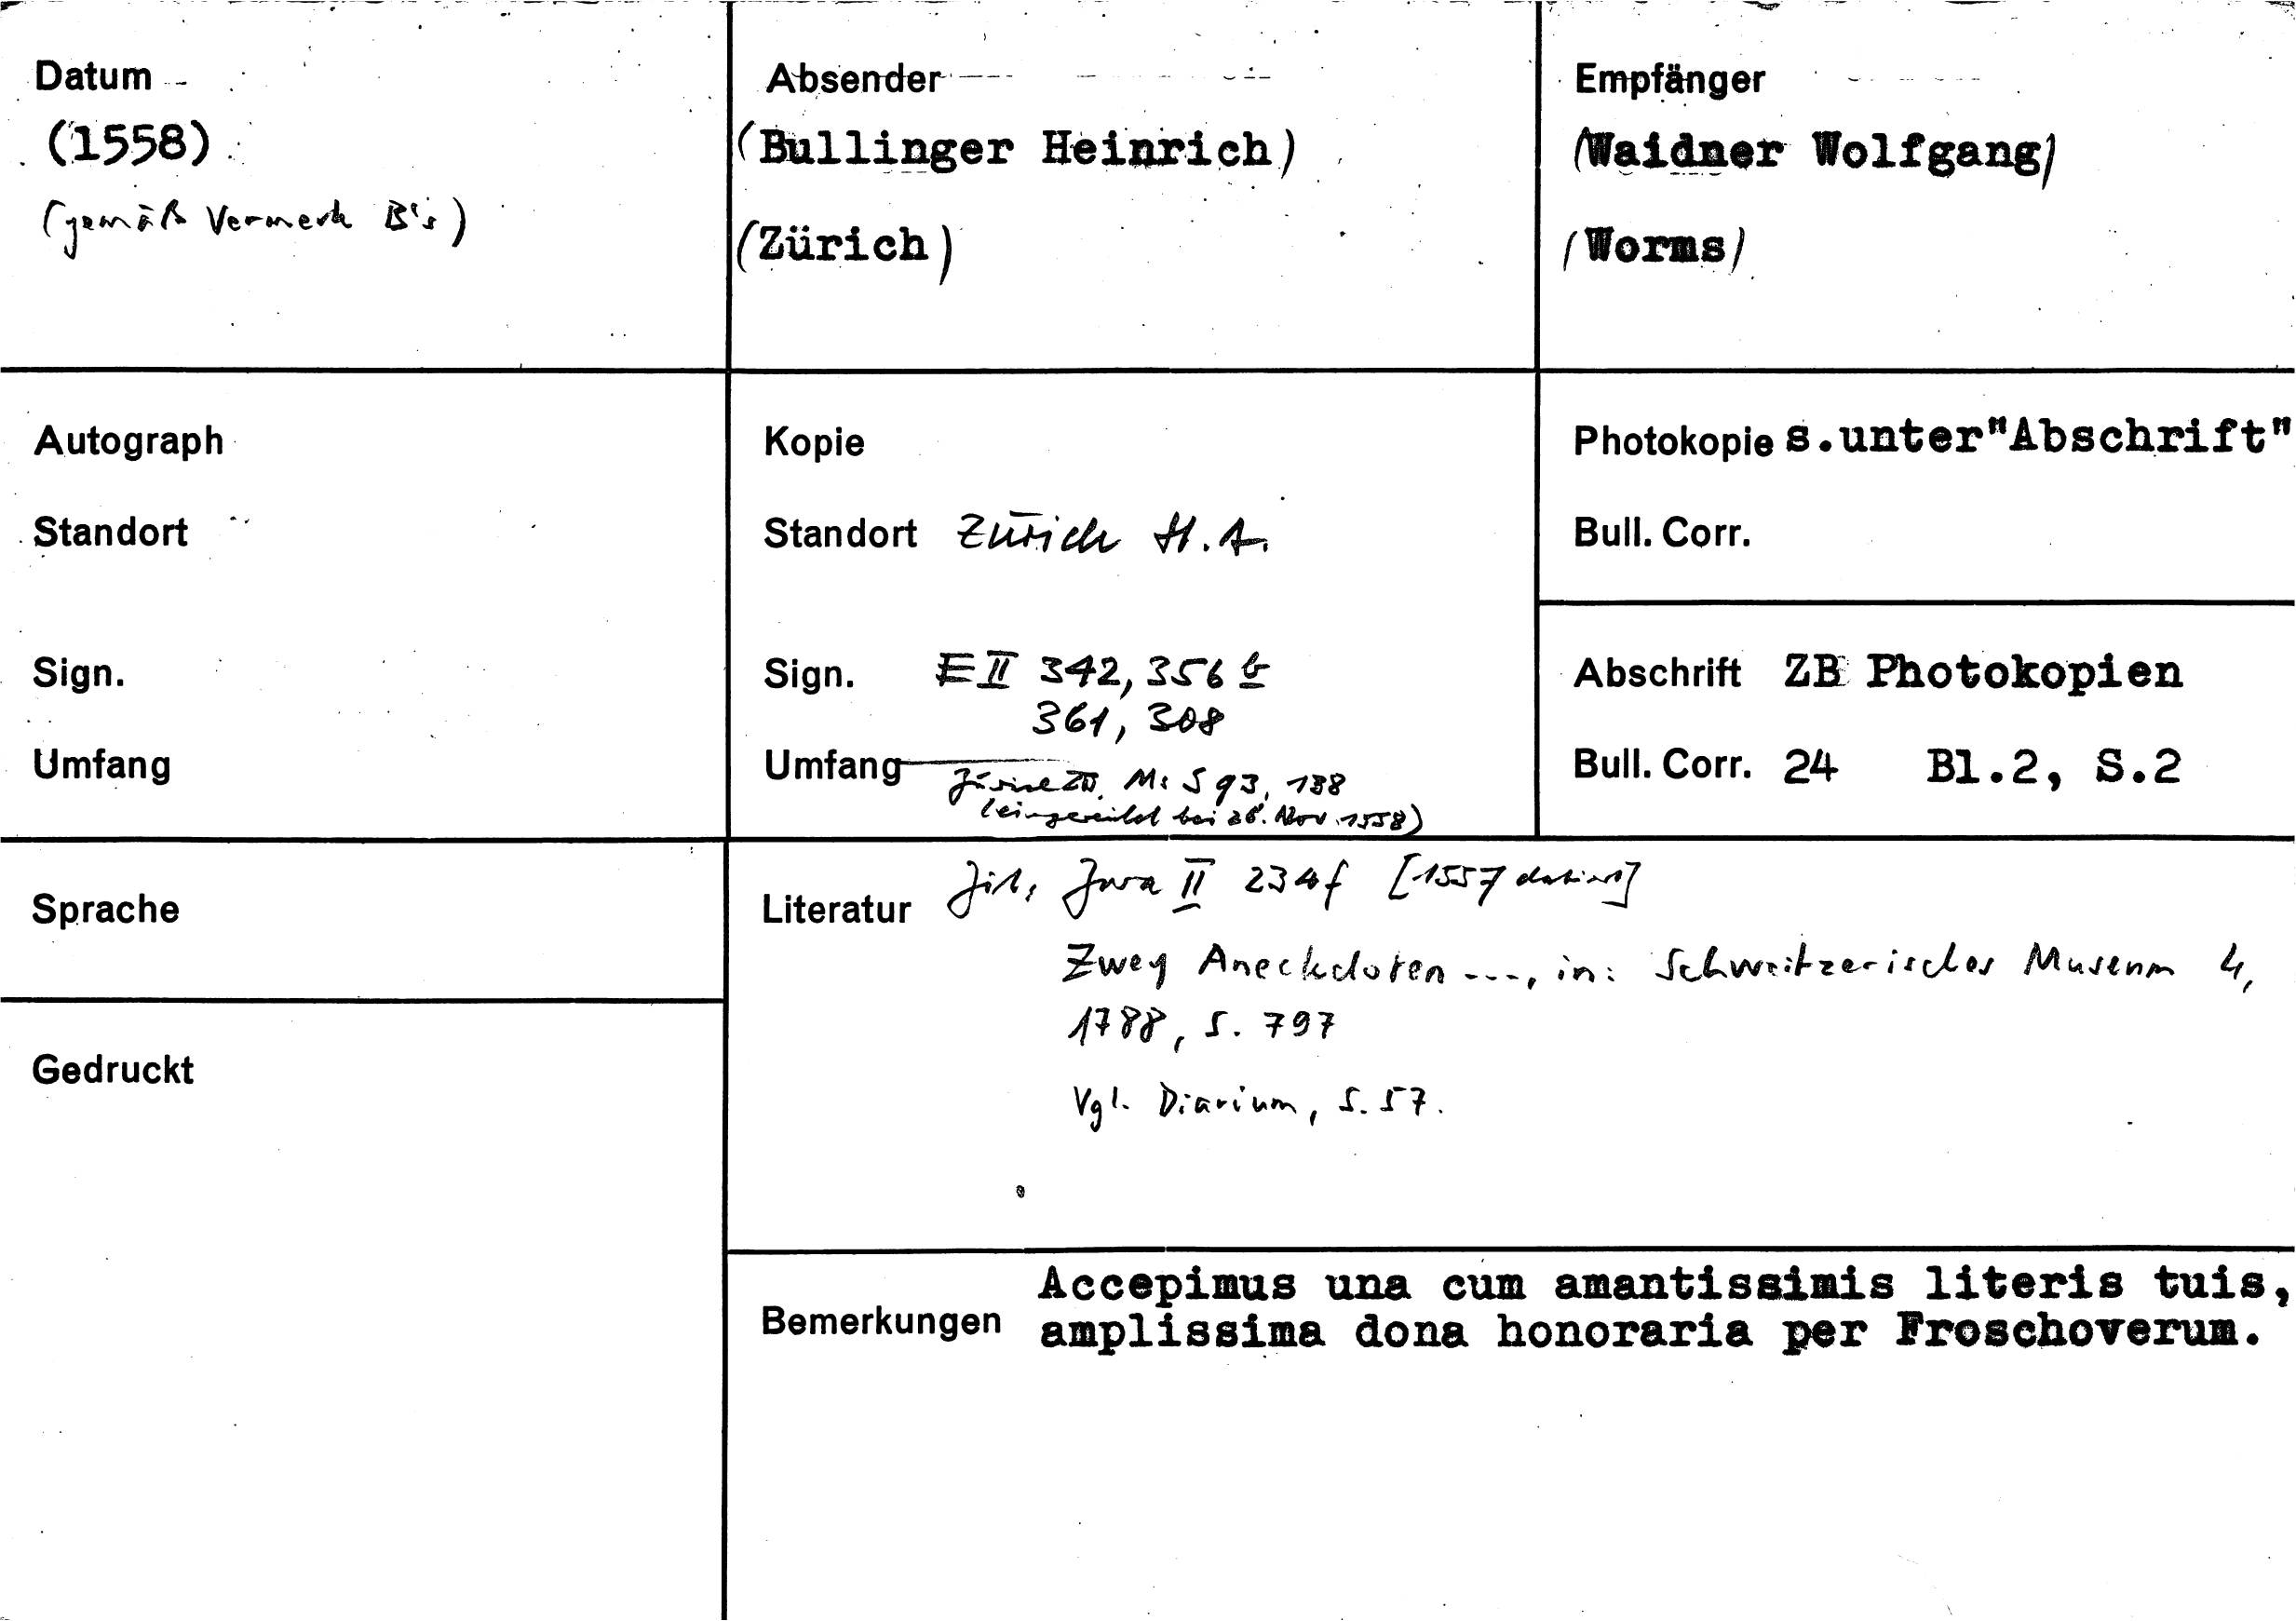 Datum
(1558)
(gemäß Vermerk B's)
Absender
(Bullinger Heinrich)
(Zürich)
Empfänger
(Waidner Wolfgang)
(Worms)
Autograph
Standort
Sign.
Umfang
Kopie
Standort Zürich St.A.
Sign. E II 342, 356 b
361, 308
Umfang Zürich ZB, Ms S 93, 138
(eingereiht bei 28. Nov. 1558)
Photokopie s.unter"Abschrift"
Bull. Corr.
Abschrift ZB Photokopien
Bull. Corr. 24 Bl.2, S.2
Sprache
Gedruckt
Literatur II 234f [1557 datiert]
Zwey Aneckdoten ---, in: Schweitzerisches Museum 4,
1788, S. 797
Vgl. Diarium, S. 57.
Bemerkungen Accepimus una cum amantissimis literis tuis,
amplissima dona honoraria per Froschoverum.